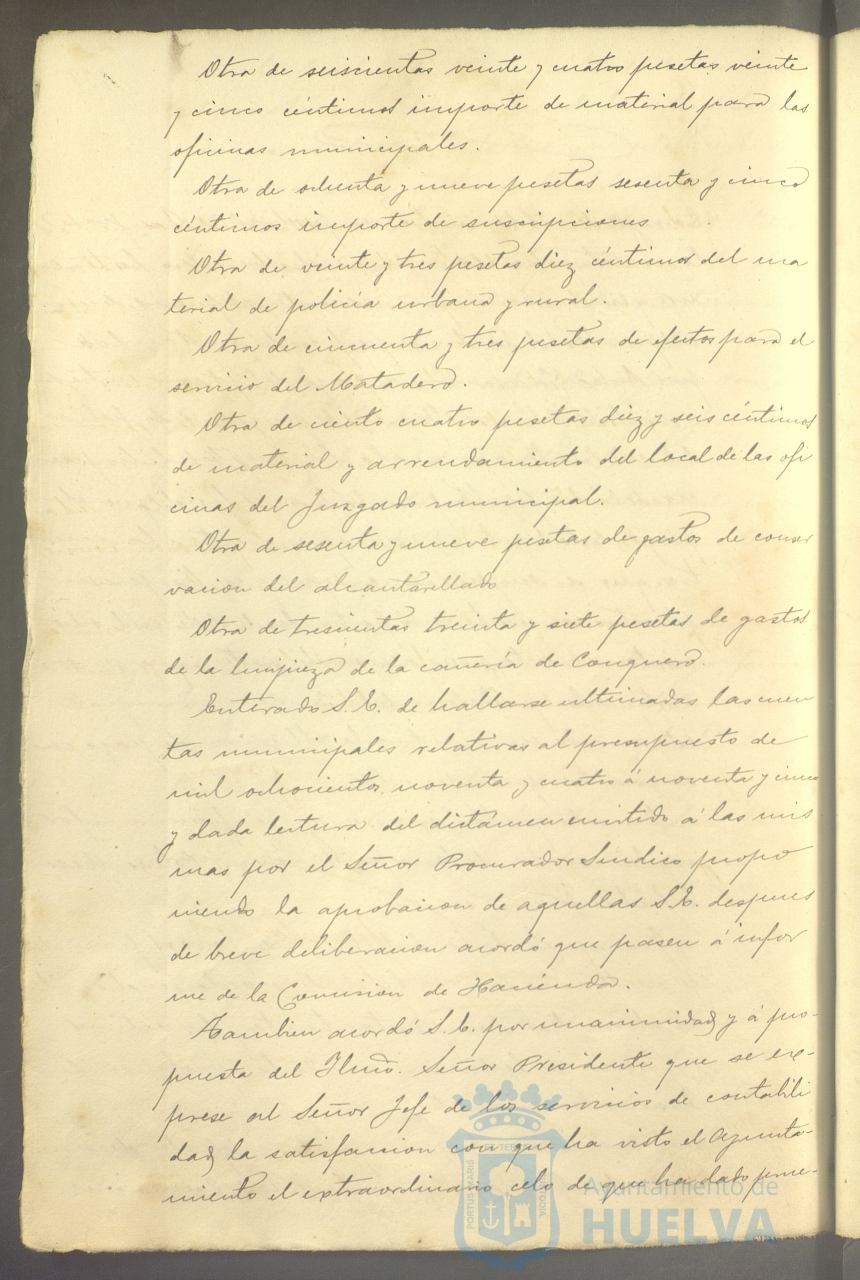 Otra de seiscientas veinte y cuatro pesetas veinte
y cinco céntimos importe de material para las
oficinas municipales.
Otra de ochenta y nueve pesetas sesenta y cinco
céntimos importe de suscripciones
Otra de veinte y tres pesetas diez céntimos del ma
terial de policia urbana y rural.
Otra de cincuenta y tres pesetas de efectos para el
servicio del Matadero.
Otra de ciento cuatro pesetas diez y seis céntimos
de material y arrendamiento del local de las ofi
cinas del Juzgado municipal.
Otra de sesenta y nueve pesetas de gastos de conser
vacion del alcantarillado
Otra de trescientas treinta y siete pesetas de gastos
de la limpieza de la cañería de Conquero.
Enterado S.E. de hallarse ultimadas las cuen
tas municipales relativas al presupuesto de
mil ochocientos noventa y cuatro á noventa y cinco
y dada lectura del dictámen emitido á las mis
mas por el Señor Procurador Sindico propo
niendo la aprobacion de aquellas S.E. despues
de breve deliberacion acordó que pasen á infor
me de la Comision de Hacienda.
Tambien acordó S.E. por unanimidad y á pro-
puesta del Ilmo. Señor Presidente que se ex-
prese al Señor Jefe de los servicios de contabili
dad la satisfaccion con que ha visto el Ayunta-
miento el extraordinario celo de que ha dado prue-
PORTUS MARIS ET TERRAE CUSTODIA
Ayuntamiento de
HUELVA